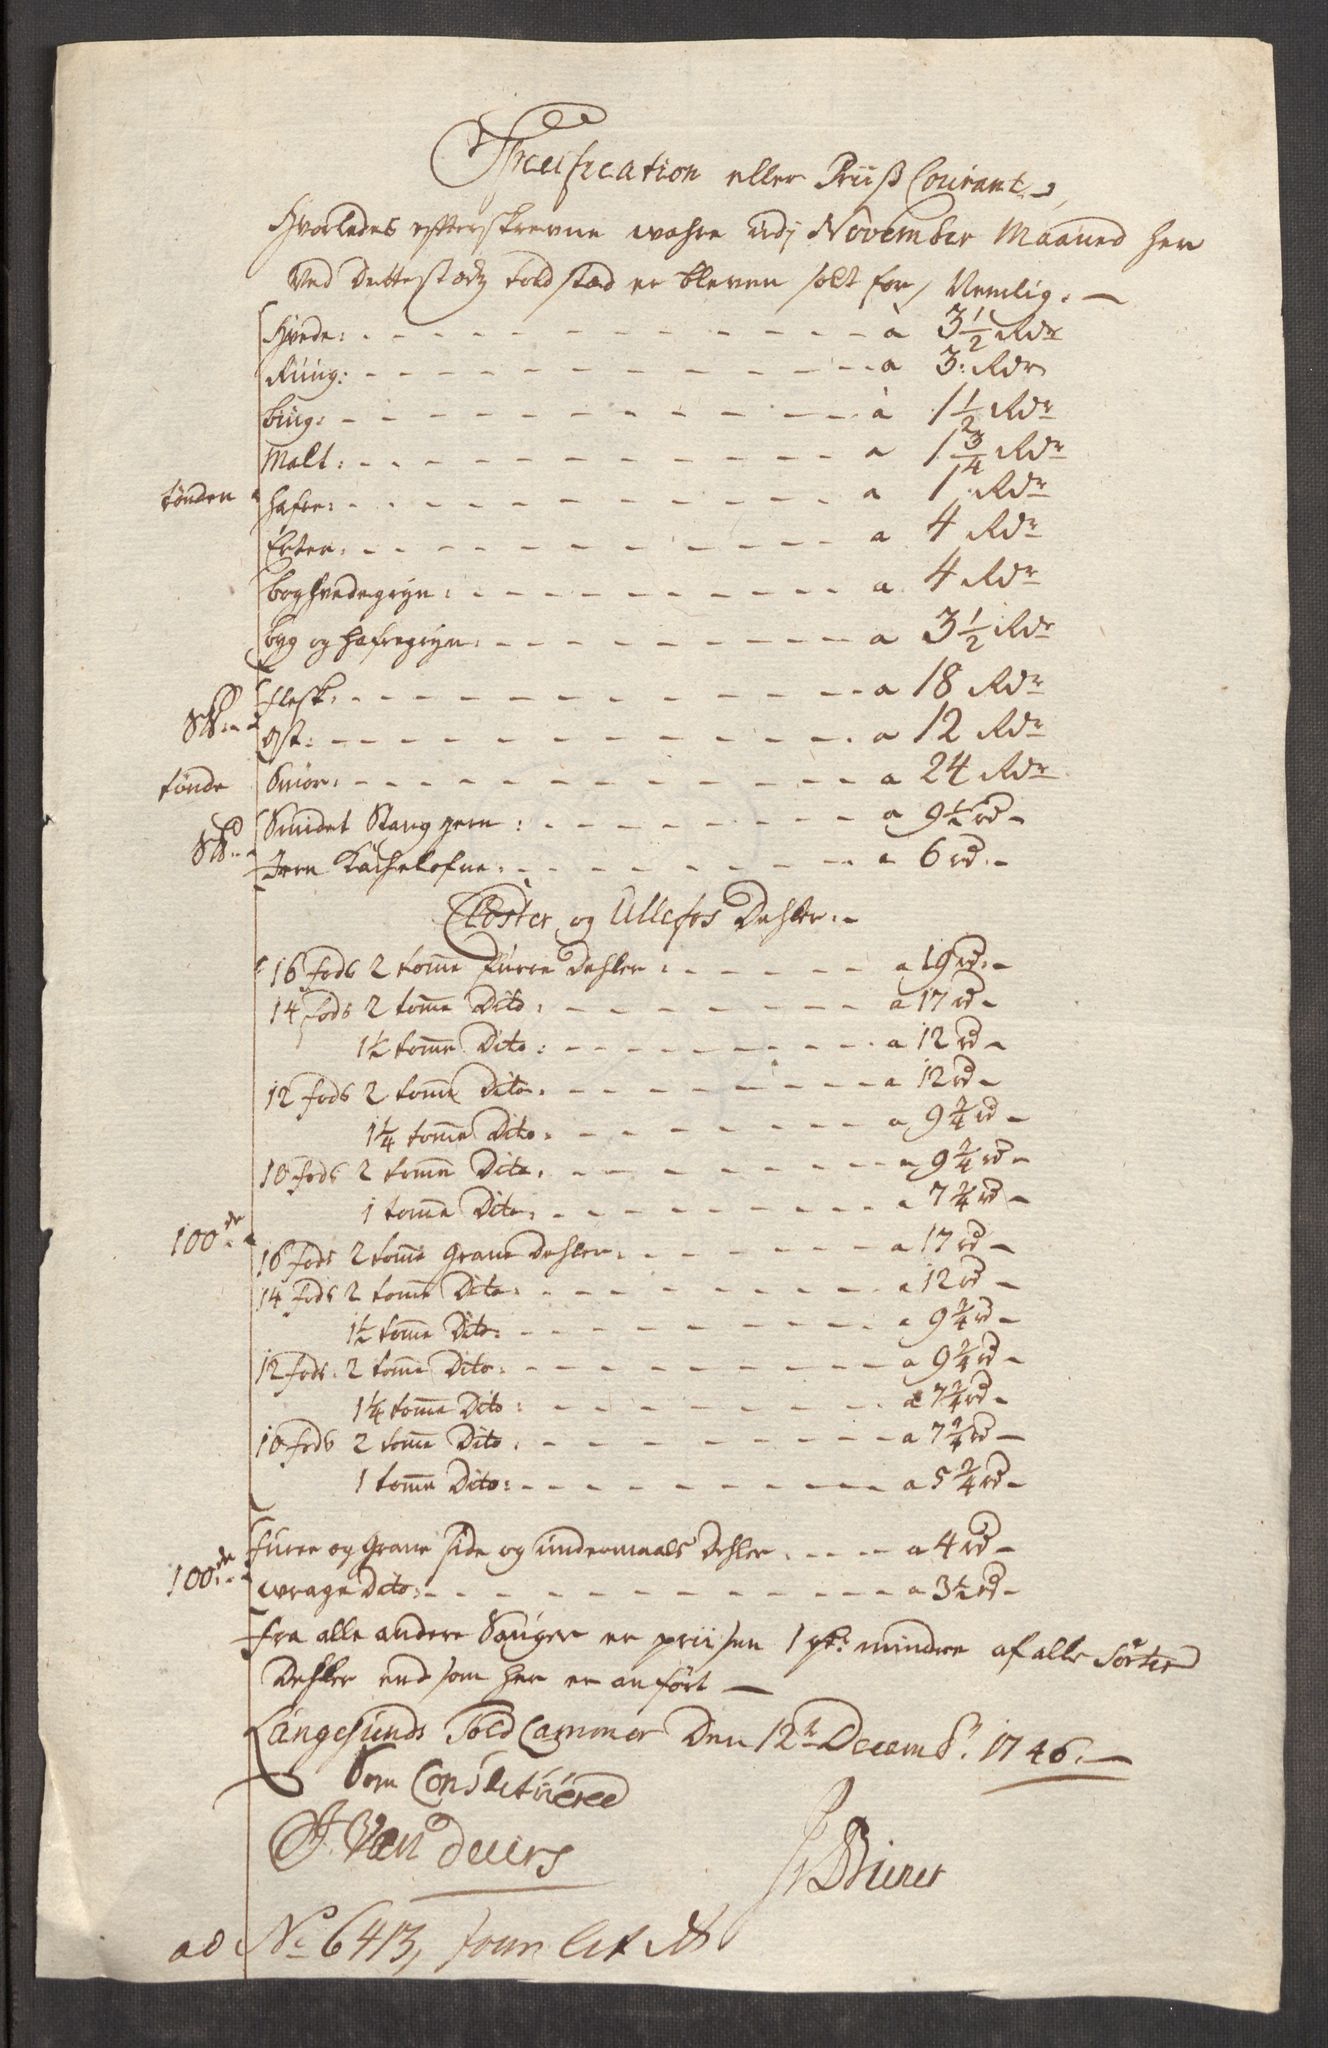 Specification eller Priiß Courant,
Hvorledes effterskrevne wahre udj November Maaned her
ved Dette stædz Told stæd er bleven solt for, Nemlig.
Hvede: à 3 1/2 Rdr
Ruug: a 3: Rdr
biug: à 1 1/2 Rdr
Malt: a 1 3/4 Rdr
tønden hafre: a 1 Rdr
Erter: a 4 Rdr
boghvedegryn: a 4 Rdr
byg og hafregryn: a 3 1/2 Rdr
Flesk: a 18 Rdr
S℔ Ost: a 12 Rdr
tønde Smør: a 24 Rdr
Smidet Stang jern: a 9 1/2 rd
S℔ Jern Kachelofne: a 6 rd
Closter og Ullefos Dehler:
16 fods 2 tomme Furre Dehler: a 19 rd
14 fods 2 tomme Dito: a 17 rd
1 1/2 tomme Dito: a 12 rd
12 fods 2 tomme Dito: a 12 rd
1 1/4 tomme Dito: a 9 2/4 rd
10 fods 2 tomme Dito: a 9 2/4 rd
1 tomme Dito: a 7 2/4 rd
100de
16 fods 2 tomme Grane Dehler: a 17 rd
14 fods 2 tomme Dito: a 12 rd
1 1/2 tomme Dito: a 9 2/4 rd
12 fods 2 tomme Dito: a 9 2/4 rd
1 1/4 tomme Dito: a 7 2/4 rd
10 fods 2 tomme Dito: a 7 2/4 rd
1 tomme Dito: a 5 2/4 rd
furre og Grane side og undermaals Dehler: a 4 rd
100de wrage Dito: a 3 1/2 rd
fra alle andre Sauger er priisen 1 mindre af alle Sorter
Dehler end som her er anført
Langesunds Told Cammer Den 12te Decembr: 1746.
Som Constituered
J. Van Deurs
ad No 6413,